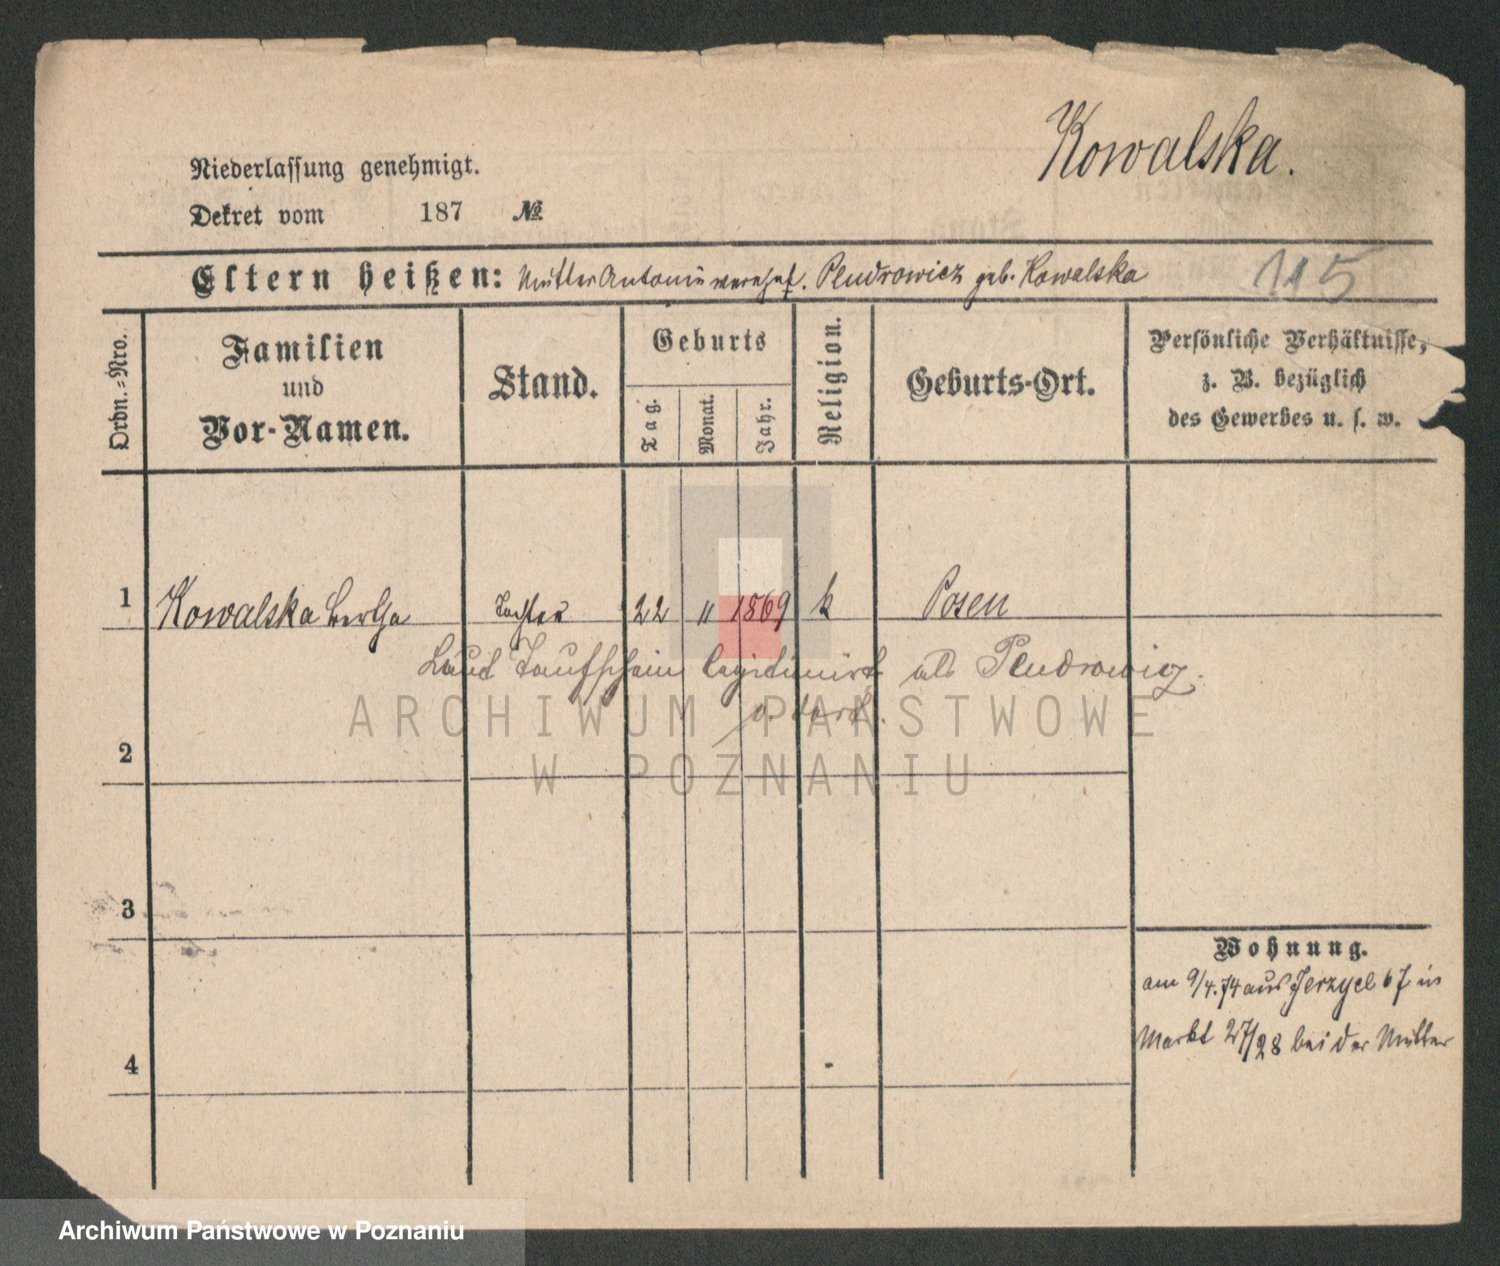 Kowalska.
Niederlassung genehmigt.
Dekret vom 187 №
Eltern heißen: Mutter Antonie verehel. Pludrowicz geb. Kowalska
115
Ordn.-Nro.
Familien
und
Vor-Namen.
Stand.
Geburts
Tag.
Monat.
Jahr.
Religion.
Geburts-Ort.
Persönliche Verhältnisse,
z. B. bezüglich
des Gewerbes u. s. w.
1 Kowalska Bertha Tochter 22 11 1869 k Posen
Laut Taufschein legitimirt als Pludrowicz.
2
3
4
Wohnung.
am 9/4.74 aus Jerzyce 67 in
Markt 27/28 bei der Mutter
ARCHIWUM PAŃSTWOWE
W POZNANIU
Archiwum Państwowe w Poznaniu